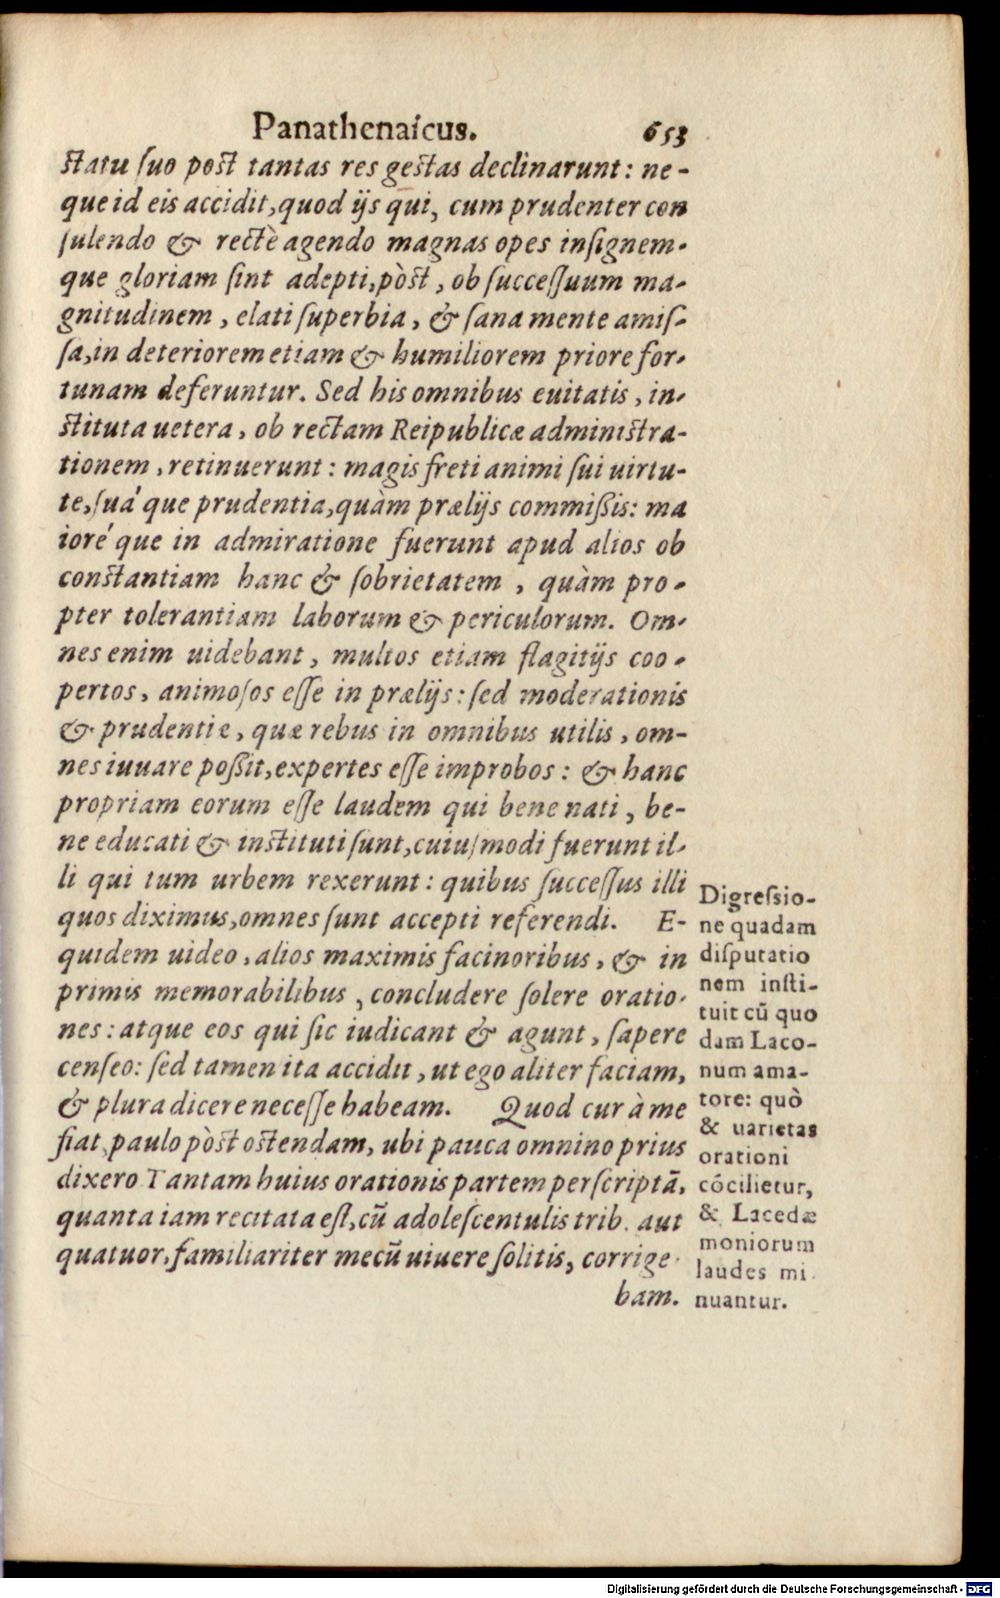 Panathenaicus. 653
ſtatu ſuo poſt tantas res geſtas declinarunt: ne-
que id eis accidit, quod ijs qui, cum prudenter con
ſulendo & rectè agendo magnas opes inſignem-
que gloriam ſint adepti, pòſt, ob ſucceſſuum ma-
gnitudinem, elati ſuperbia, & ſana mente amiſ-
ſa, in deteriorem etiam & humiliorem priore for-
tunam deferuntur. Sed his omnibus euitatis, in-
ſtituta uetera, ob rectam Reipublicæ adminiſtra-
tionem, retinuerunt: magis freti animi ſui uirtu-
te, ſuá que prudentia, quàm prælijs commißis: ma
ioré que in admiratione fuerunt apud alios ob
conſtantiam hanc & ſobrietatem, quàm pro-
pter tolerantiam laborum & periculorum. Om-
nes enim uidebant, multos etiam flagitijs coo-
pertos, animoſos eſſe in prælijs: ſed moderationis
& prudentiæ, quæ rebus in omnibus utilis, om-
nes iuuare poßit, expertes eſſe improbos: & hanc
propriam eorum eſſe laudem qui bene nati, be-
ne educati & inſtituti ſunt, cuiuſmodi fuerunt il-
li qui tum urbem rexerunt: quibus ſucceſſus illi
quos diximus, omnes ſunt accepti referendi. E-
quidem uideo, alios maximis facinoribus, & in
primis memorabilibus, concludere ſolere oratio-
nes: atque eos qui ſic iudicant & agunt, ſapere
cenſeo: ſed tamen ita accidit, ut ego aliter faciam,
& plura dicere neceſſe habeam. Quod cur à me
fiat, paulo pòſt oſtendam, ubi pauca omnino prius
dixero Tantam huius orationis partem perſcriptã,
quanta iam recitata eſt, cũ adoleſcentulis trib. aut
quatuor, familiariter mecũ uiuere ſolitis, corrige-
bam.
Digreſsio-
ne quadam
diſputatio
nem inſti-
tuit cũ quo
dam Laco-
num ama-
tore: quò
& uarietas
orationi
cōcilietur,
& Lacedæ
moniorum
laudes mi
nuantur.
Digitalisierung gefördert durch die Deutsche Forschungsgemeinschaft - DFG